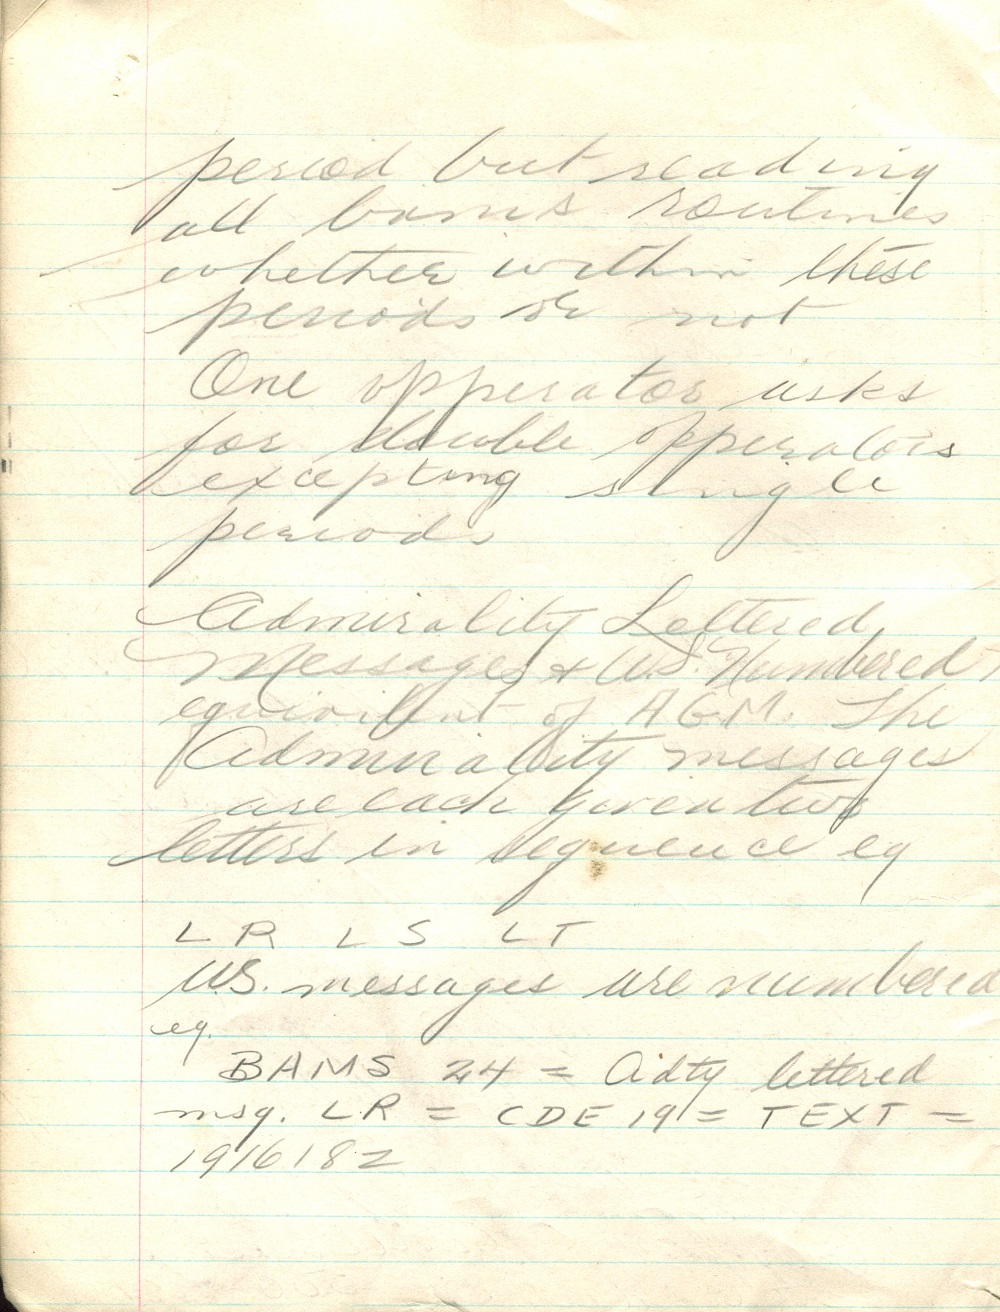 period but reading
all bams routines
whether within these
periods or not
One opperator asks
for double opperators
excepting single
periods
Admirality Lettered
Messages & U.S. Numbered
equivilent of AGM. The
Admirality messages
are each given two
letters in sequence eg
LR LS LT
U.S. messages are numbered
eg.
BAMS 24 = Adty lettered
msg. LR = CDE 19 = TEXT =
191618Z